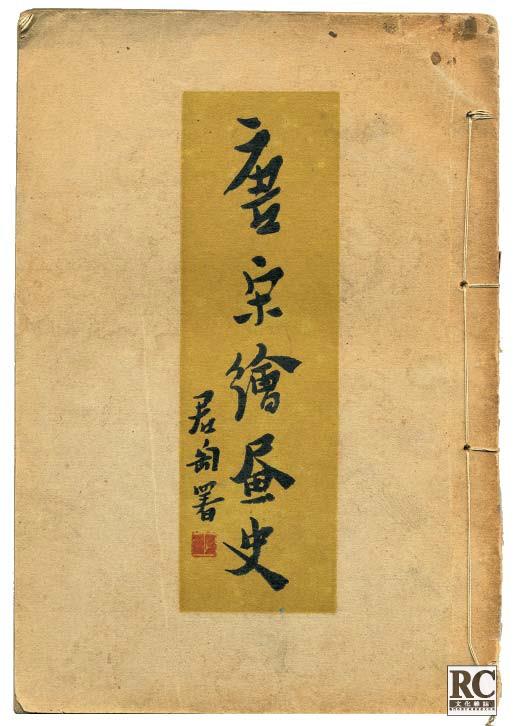 唐宋繪畫史
君匋署
RC
文化雜誌